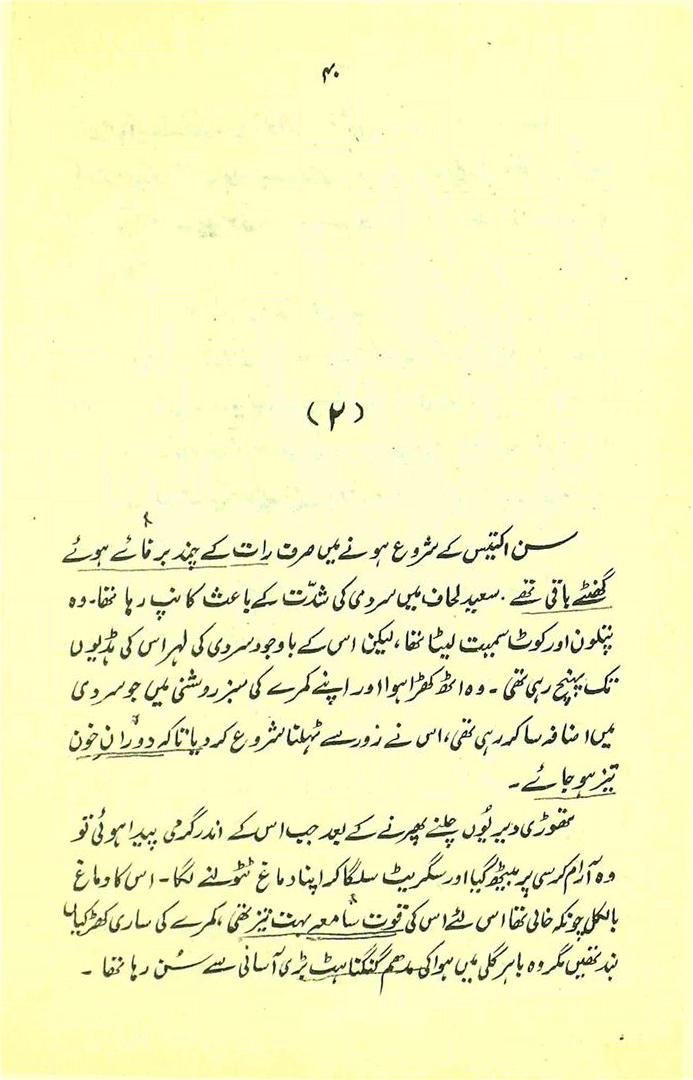 ۴۰
(۲)
سن اکتیس کے شروع ہونے میں صرف رات کے چند برفائے ہوئے
گھنٹے باقی تھے۔ سعید لحاف میں سردی کی شدّت کے باعث کانپ رہا تھا۔ وہ
پتلون اور کوٹ سمیت لیٹا تھا، لیکن اس کے باوجود سردی کی لہر اس کی ہڈیوں
تک پہنچ رہی تھی۔ وہ اٹھ کھڑا ہوا اور اپنے کمرے کی سبز روشنی میں جو سردی
میں اضافہ سا کر رہی تھی، اس نے زور سے ٹہلنا شروع کر دیا تاکہ دورانِ خون
تیز ہو جائے۔
تھوڑی دیر یُوں چلنے پھرنے کے بعد جب اس کے اندر گرمی پیدا ہوئی تو
وہ آرام کرسی پر بیٹھ گیا اور سگریٹ سلگا کر اپنا دماغ ٹٹولنے لگا۔ اس کا دماغ
بالکل چونکہ خالی تھا اس لئے اس کی قوت سامعہ بہت تیز تھی، کمرے کی ساری کھڑکیاں
بند تھیں مگر وہ باہر گلی میں ہوا کی مدھم گنگناہٹ بڑی آسانی سے سُن رہا تھا۔